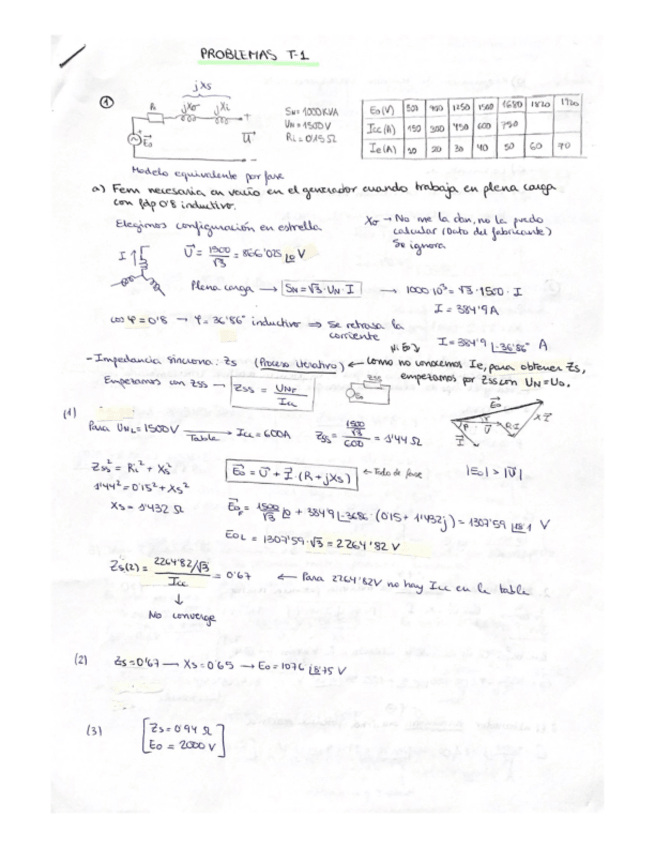 PROBLEMAS T-1
jXs
① Ri jXσ jXi +
Eo U -
SN = 1000 KVA
UN = 1500 V
Ri = 0'15 Ω
Eo (V)
Icc (A) 150 300 450 600 750
Ie (A) 20 30 40 50 60 70
1250 1500 1680 1820
Modelo equivalente por fase
a) Fem necesaria en vacío en el generador cuando trabaja en plena carga
con fdp 0'8 inductivo.
Elegimos configuración en estrella
Xσ → No me la dan, no la puedo
calcular (Dato del fabricante)
Se ignora
I U = 1500/√3 = 866'025 |0 V
Plena carga → SN = √3 · UN · I → 1000·10³ = √3 · 1500 · I
I = 384'9 A
cos φ = 0'8 → φ = 36'86° inductivo ⇒ Se retrasa la
corriente I = 384'9 |-36'86° A
- Impedancia síncrona: Zs (Proceso iterativo) ← Como no conocemos Ie, para obtener Zs,
empezamos por Zss con UN = Uo.
Empezamos con Zss → Zss = UNF/Icc
Zss
Eo
(1)
Para UNL = 1500 V → Tabla Icc = 600A Zss = (1500/√3)/600 = 1'44 Ω
Eo
U R·I
I
Zss² = Ri² + Xs²
Eo = U + I · (R + jXs) ← Todo de fase |Eo| > |U|
1'44² = 0'15² + Xs²
Xs = 1'432 Ω
EoF = 1500/√3 |0 + 384'9 |-36'86 · (0'15 + 1'432j) = 1307'59 |18'1 V
EoL = 1307'59 · √3 = 2264'82 V
Zs(2) = (2264'82/√3)/Icc = 0'67 ← Para 2264'82V no hay Icc en la tabla
↓
No converge
(2) Zs = 0'67 → Xs = 0'65 → Eo = 1076 |8'75 V
(3) Zs = 0'94 Ω
Eo = 2000 V